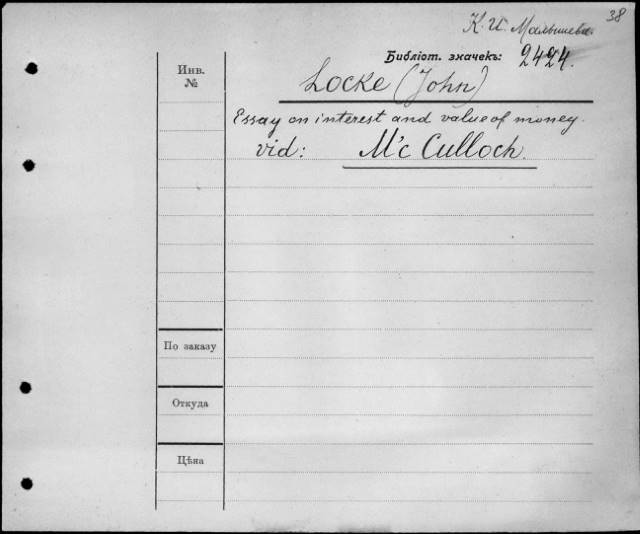 38
К. И. Малышева.
Библіот. значекъ: 2424.
Инв.
№
Locke (John)
Essay on interest and value of money.
vid: M'c Culloch.
По заказу
Откуда
Цѣна